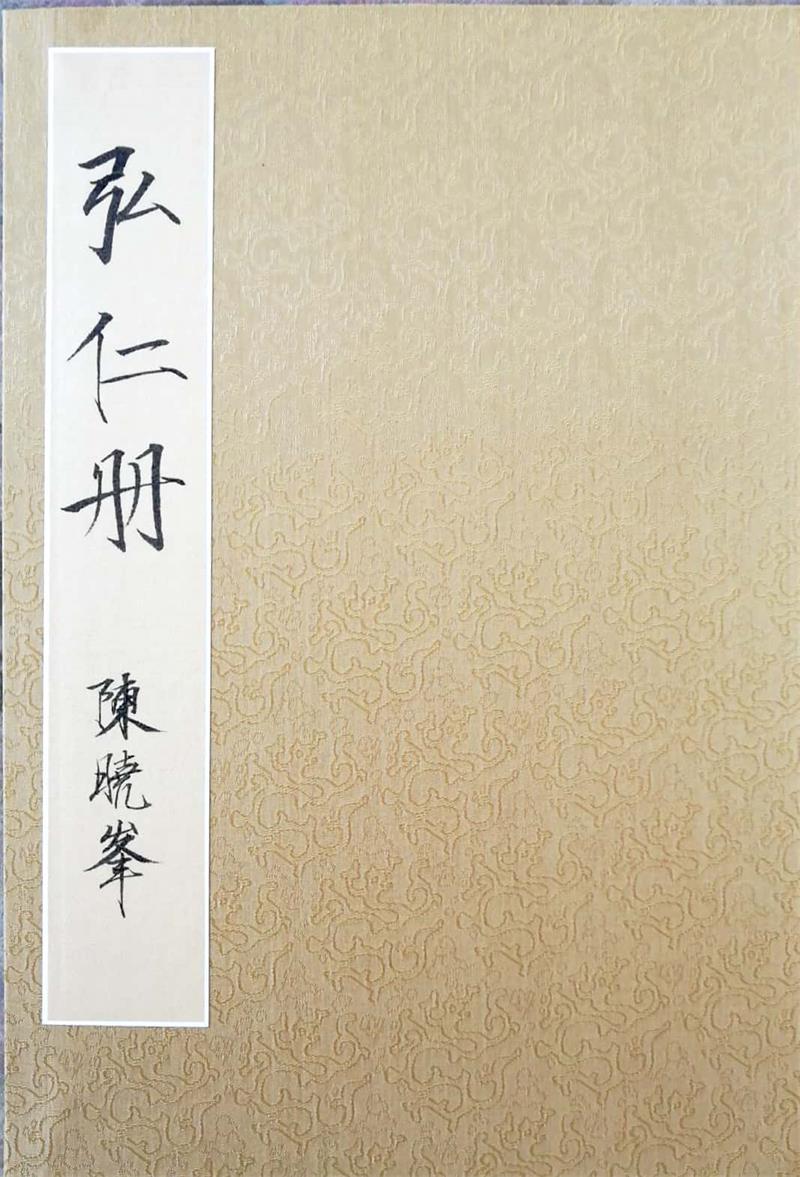 弘仁册
陳曉峯